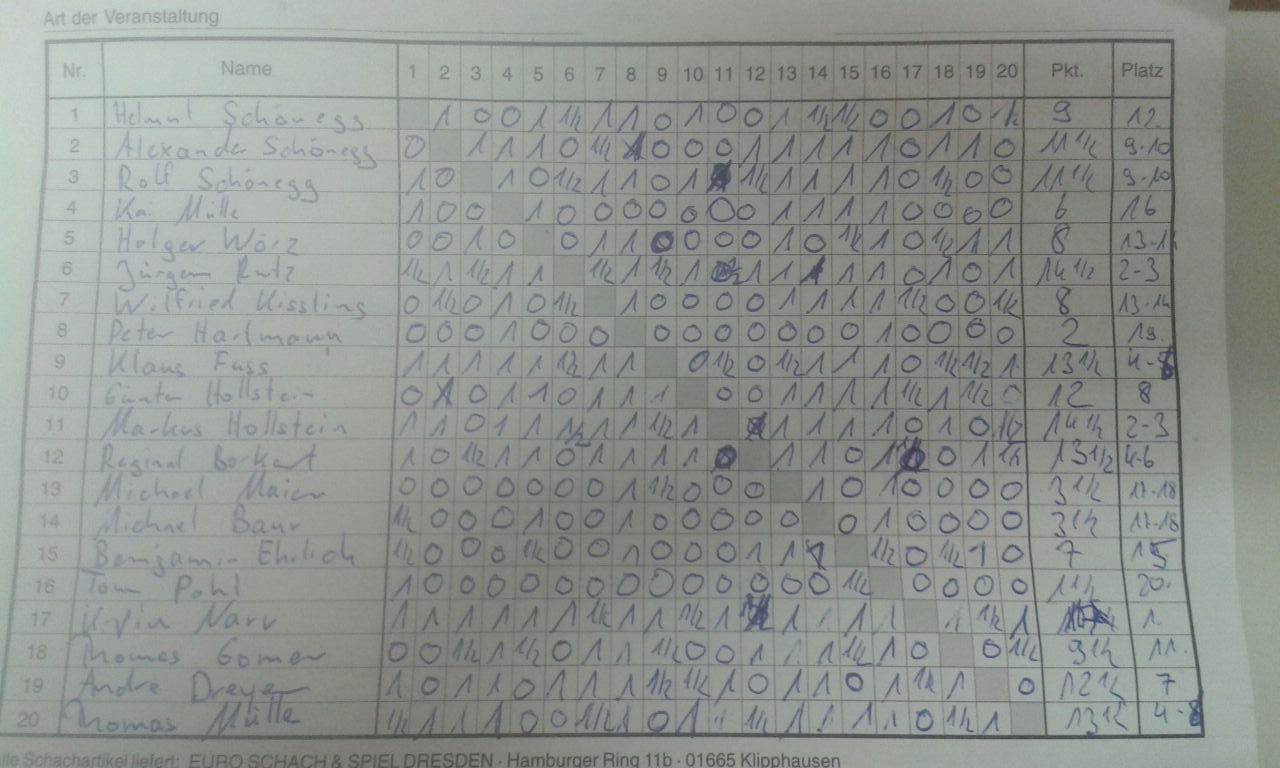 Art der Veranstaltung
Nr. Name 1 2 3 4 5 6 7 8 9 10 11 12 13 14 15 16 17 18 19 20 Pkt. Platz
1 Helmut Schönegg 1 0 0 1 1/2 1 1 0 1 0 0 1 1/2 1/2 0 0 1 0 1/2 9 12.
2 Alexander Schönegg 0 1 1 1 0 1/2 1 0 0 0 1 1 1 1 1 0 1 1 0 11 1/2 9-10
3 Rolf Schönegg 1 0 1 0 1/2 1 1 0 1 1/2 1 1 1 1 0 1/2 0 0 11 1/2 9-10
4 Kai Mülle 1 0 0 1 0 0 0 0 0 0 0 1 1 1 0 0 0 0 6 16
5 Holger Wörz 0 0 1 0 0 1 1 0 0 0 0 1 0 1/2 1 0 1/2 1 1 8
6 Jürgen Rutz 1/2 1 1/2 1 1 1/2 1 1/2 1 1 1 1 1 0 1 0 1 14 1/2 2-3
7 Wilfried Kissling 0 1/2 0 1 0 1/2 1 0 0 0 0 1 1 1 1 1/2 0 0 1/2 8 13-14
8 Peter Hartmann 0 0 0 1 0 0 0 0 0 0 0 0 0 0 1 0 0 0 0 2 19.
9 Klaus Fuss 1 1 1 1 1 1/2 1 1 0 1/2 0 1/2 1 1 1 0 1/2 1/2 1 13 1/2
10 Günter Hollstein 0 1 0 1 1 0 1 1 1 0 0 1 1 1 1 1/2 1 1/2 0 12 8
11 Markus Hollstein 1 1 0 1 1 1/2 1 1 1/2 1 1 1 1 1 0 1 0 14 1/2 2-3
12 1 0 1/2 1 1 0 1 1 1 1 0 1 1 0 1 0 1 13 1/2 4-6
13 Michael Maier 0 0 0 0 0 0 0 1 1/2 0 0 0 1 0 1 0 0 0 0 3 1/2 17-18
14 Michael Baur 1/2 0 0 0 1 0 0 1 0 0 0 0 0 0 1 0 0 0 0 3 1/2 17-18
15 Benjamin Ehrlich 1/2 0 0 0 1/2 0 0 1 0 0 0 1 1 1 1/2 0 1/2 1 0 7 15
16 Tom Pohl 1 0 0 0 0 0 0 0 0 0 0 0 0 0 1/2 0 0 0 0 1 1/2 20.
17 1 1 1 1 1 1 1/2 1 1 1/2 1 1 1 1 1 1 1/2 1 1.
18 Thomas Gomer 0 0 1/2 1 1/2 0 1 1 1/2 0 0 1 1 1 1/2 1 0 0 1/2 9 1/2 11.
19 Andre Dreyer 1 0 1 1 0 1 1 1 1/2 1/2 1 0 1 1 0 1 1/2 1 0 12 1/2 7
20 Thomas Mülle 1/2 1 1 1 0 0 1/2 1 0 1 1/2 1 1 1 1 0 1/2 1 13 1/2
alle Schachartikel liefert: EURO SCHACH & SPIEL DRESDEN · Hamburger Ring 11b · 01665 Klipphausen